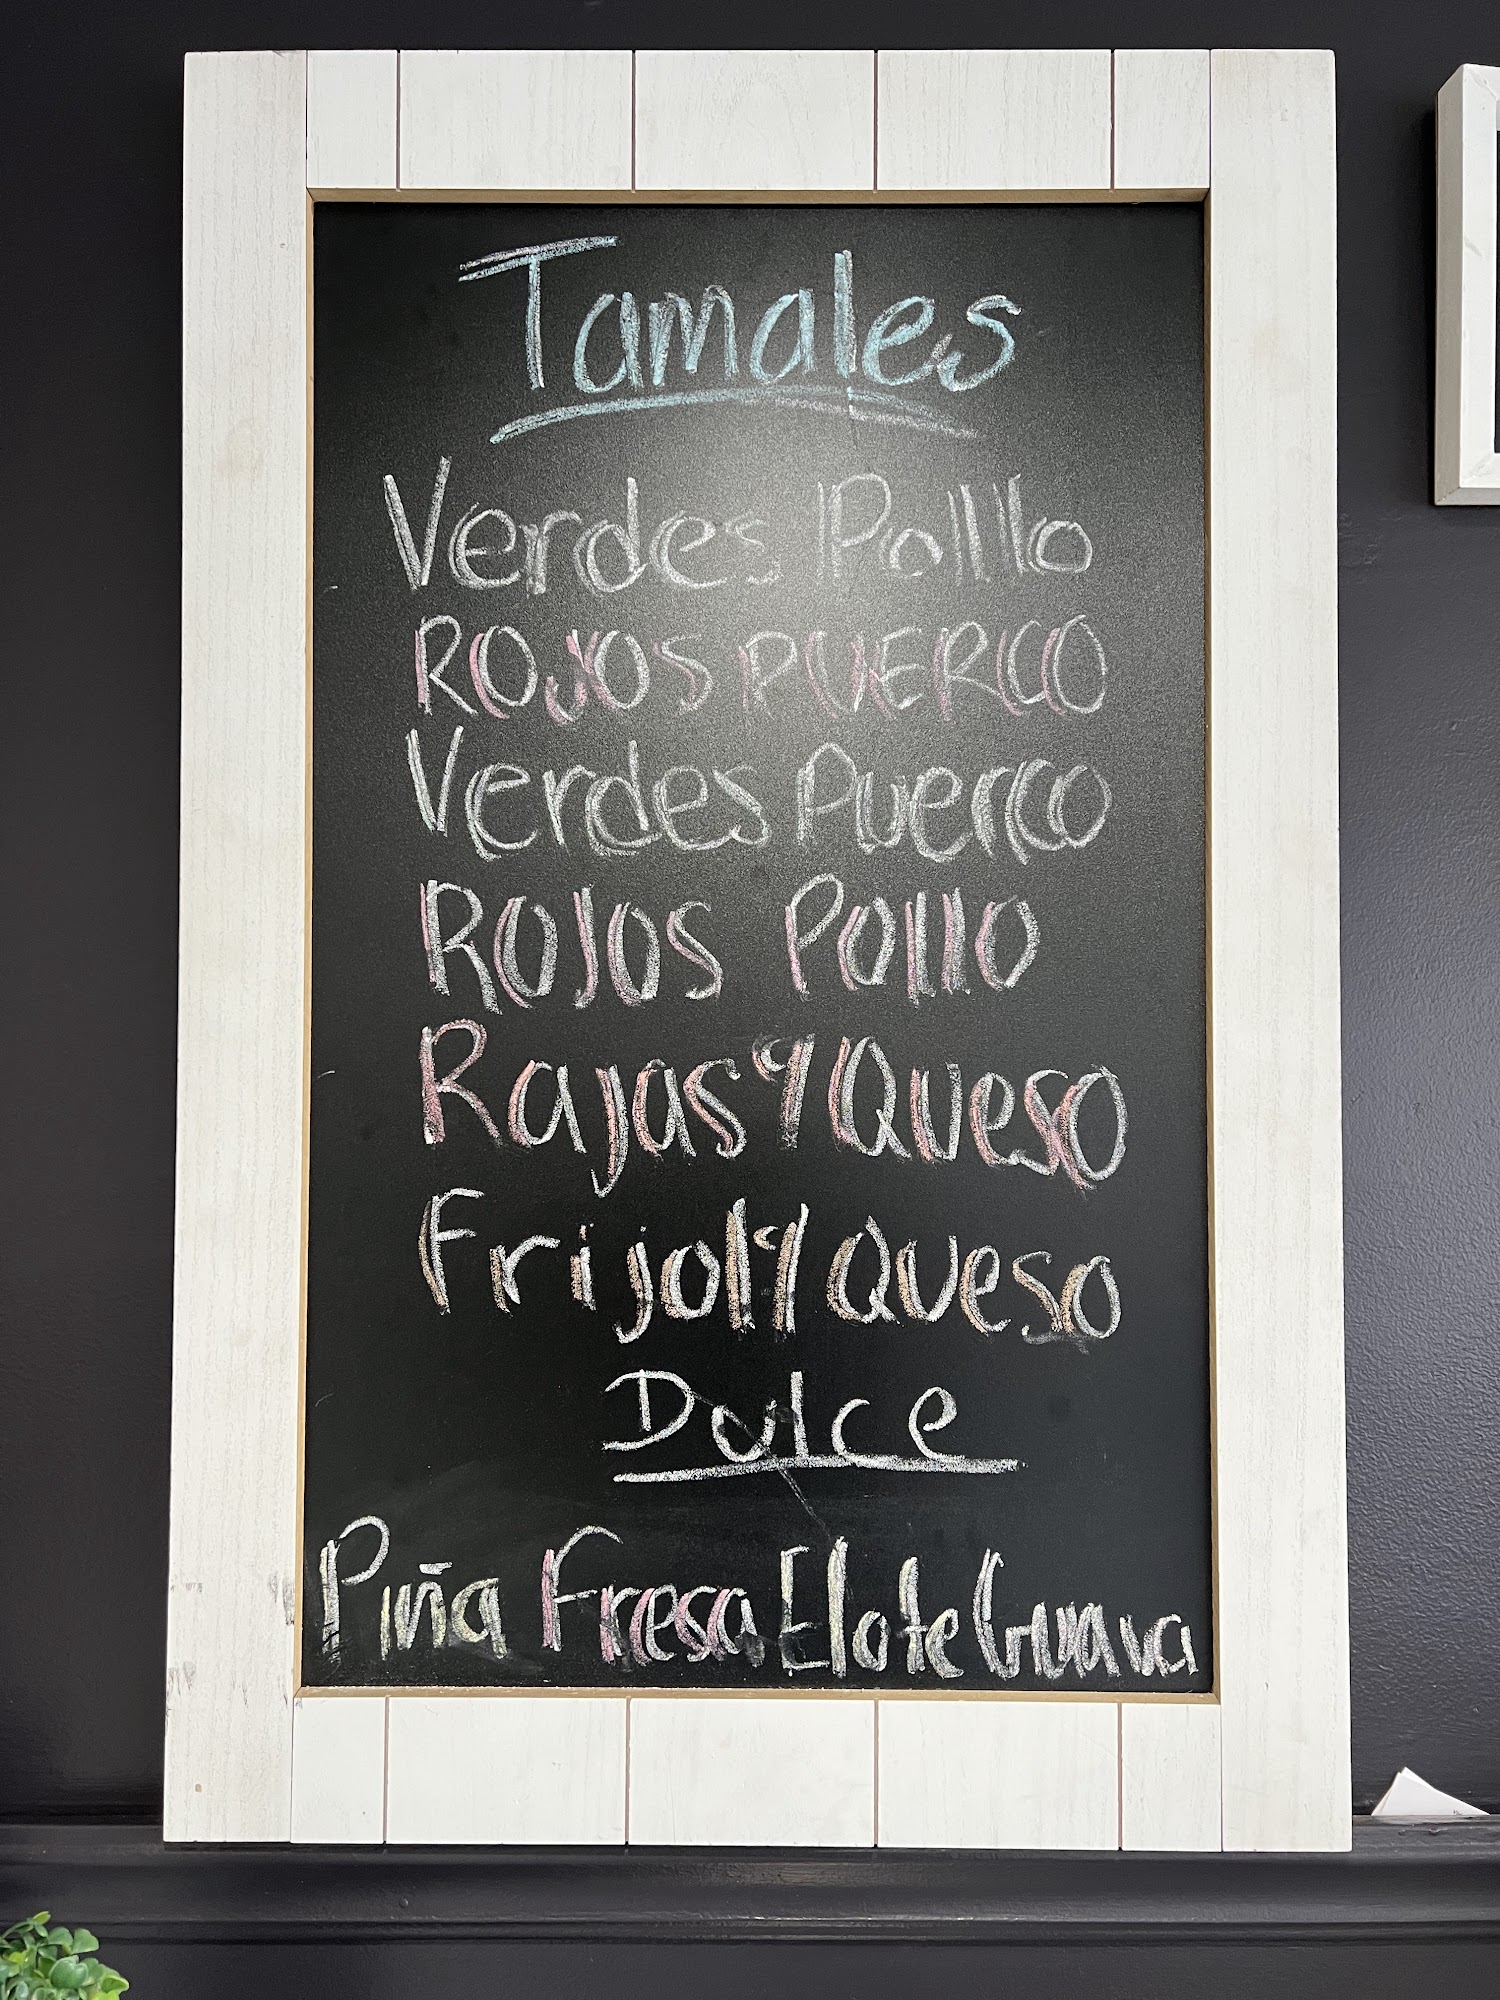 Tamales
Verdes Pollo
ROJOS PUERCO
Verdes Puerco
Rojos Pollo
Rajas y Queso
Frijol y Queso
Dulce
Piña Fresa Elote Guava